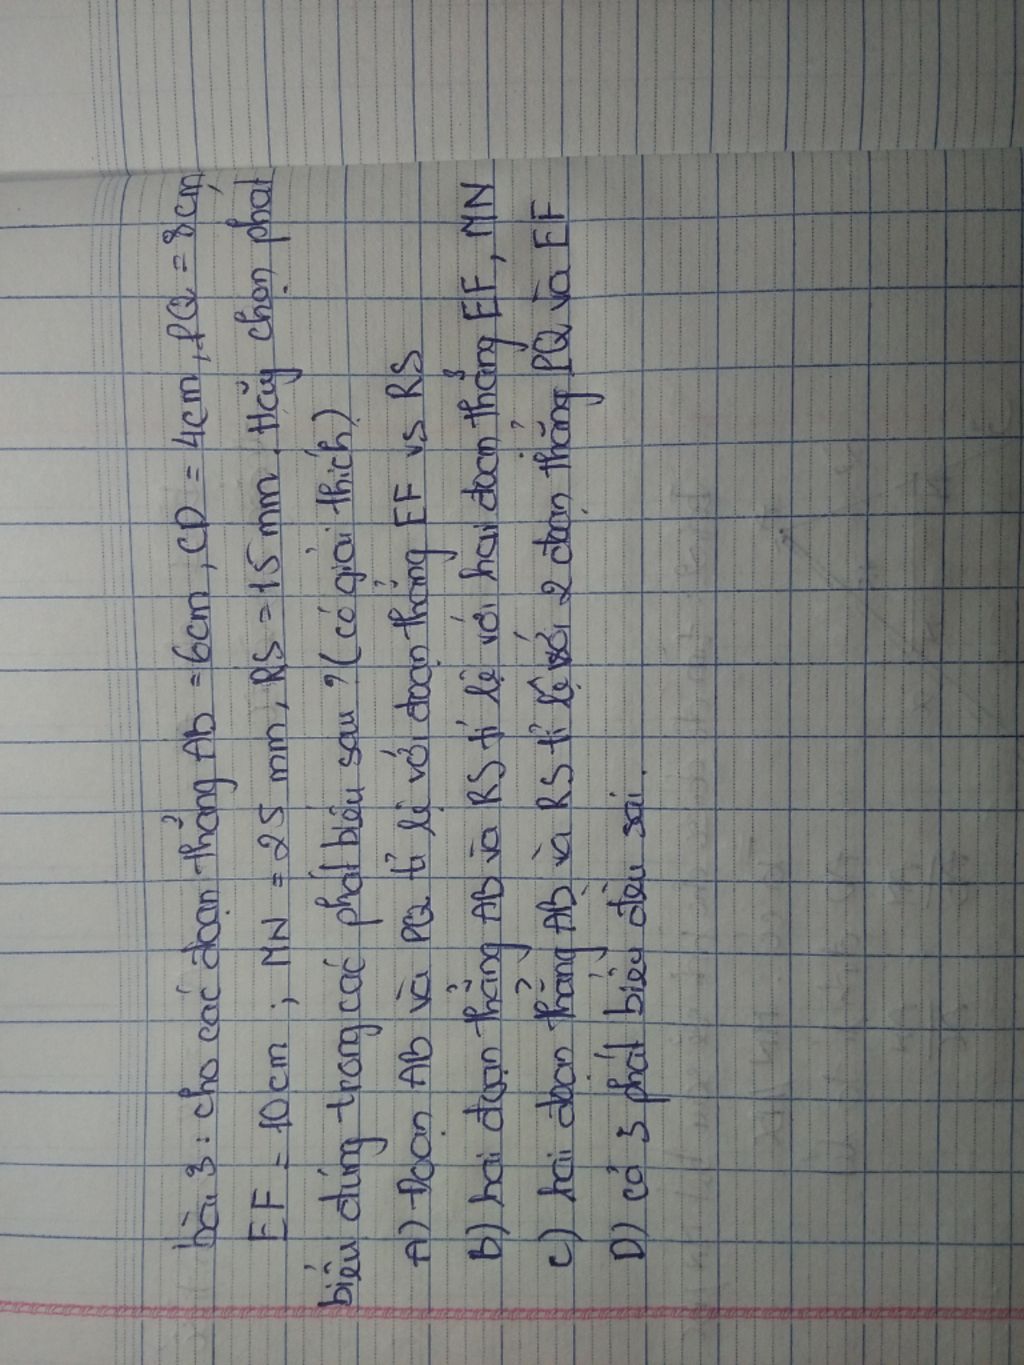 bài 3: cho các đoạn thẳng AB = 6cm, CD = 4cm, PQ = 8cm
EF = 10cm ; MN = 25 mm, RS = 15 mm. Hãy chọn phát
biểu đúng trong các phát biểu sau ? (có giải thích)
A) Đoạn AB và PQ tỉ lệ với đoạn thẳng EF vs RS
B) hai đoạn thẳng AB và RS tỉ lệ với hai đoạn thẳng EF, MN
C) hai đoạn thẳng AB và RS tỉ lệ với 2 đoạn thẳng PQ và EF
D) cả 3 phát biểu đều sai.